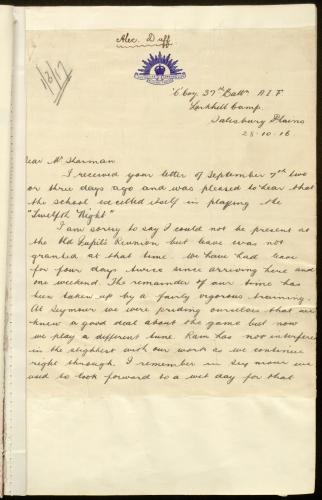 Alec. Duff
1/2/17
"C" Coy. 37th Battn A.I.F
Larkhill Camp.
Salisbury Plains
28-10-16
Dear Mr Sharman
I received your letter of September 7th two
or three days ago and was pleased to hear that
the school excelled itself in playing the
"Twelfth Night"
I am sorry to say I could not be present at
the Old Pupils Reunion but leave was not
granted at that time. We have had leave
for four days twice since arriving here and
one weekend. The remainder of our time has
been taken up by a fairly vigorous training.
At Seymour we were priding ourselves that we
knew a good deal about the game but now
we play a different tune. Rain has not interfere
in the slightest with our work as we continue
right through. I remember in Seymour we
used to look forward to a wet day for that